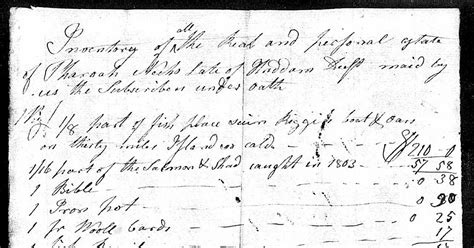 Inventory of all The Real and personal estate
of Pharoah Hicks late of Haddam Decest maid by
us the Subscribers under oath
1/8 part of fish place sein Riggin boat & Oars
on thirty miles Island so cald - $210 0
1/16 part of the Salmon & Shad caught in 1803 - 57 58
1 Bible 0 38
1 Iron pot - 0 90
1 pr Wooll Cards - 0 25
1